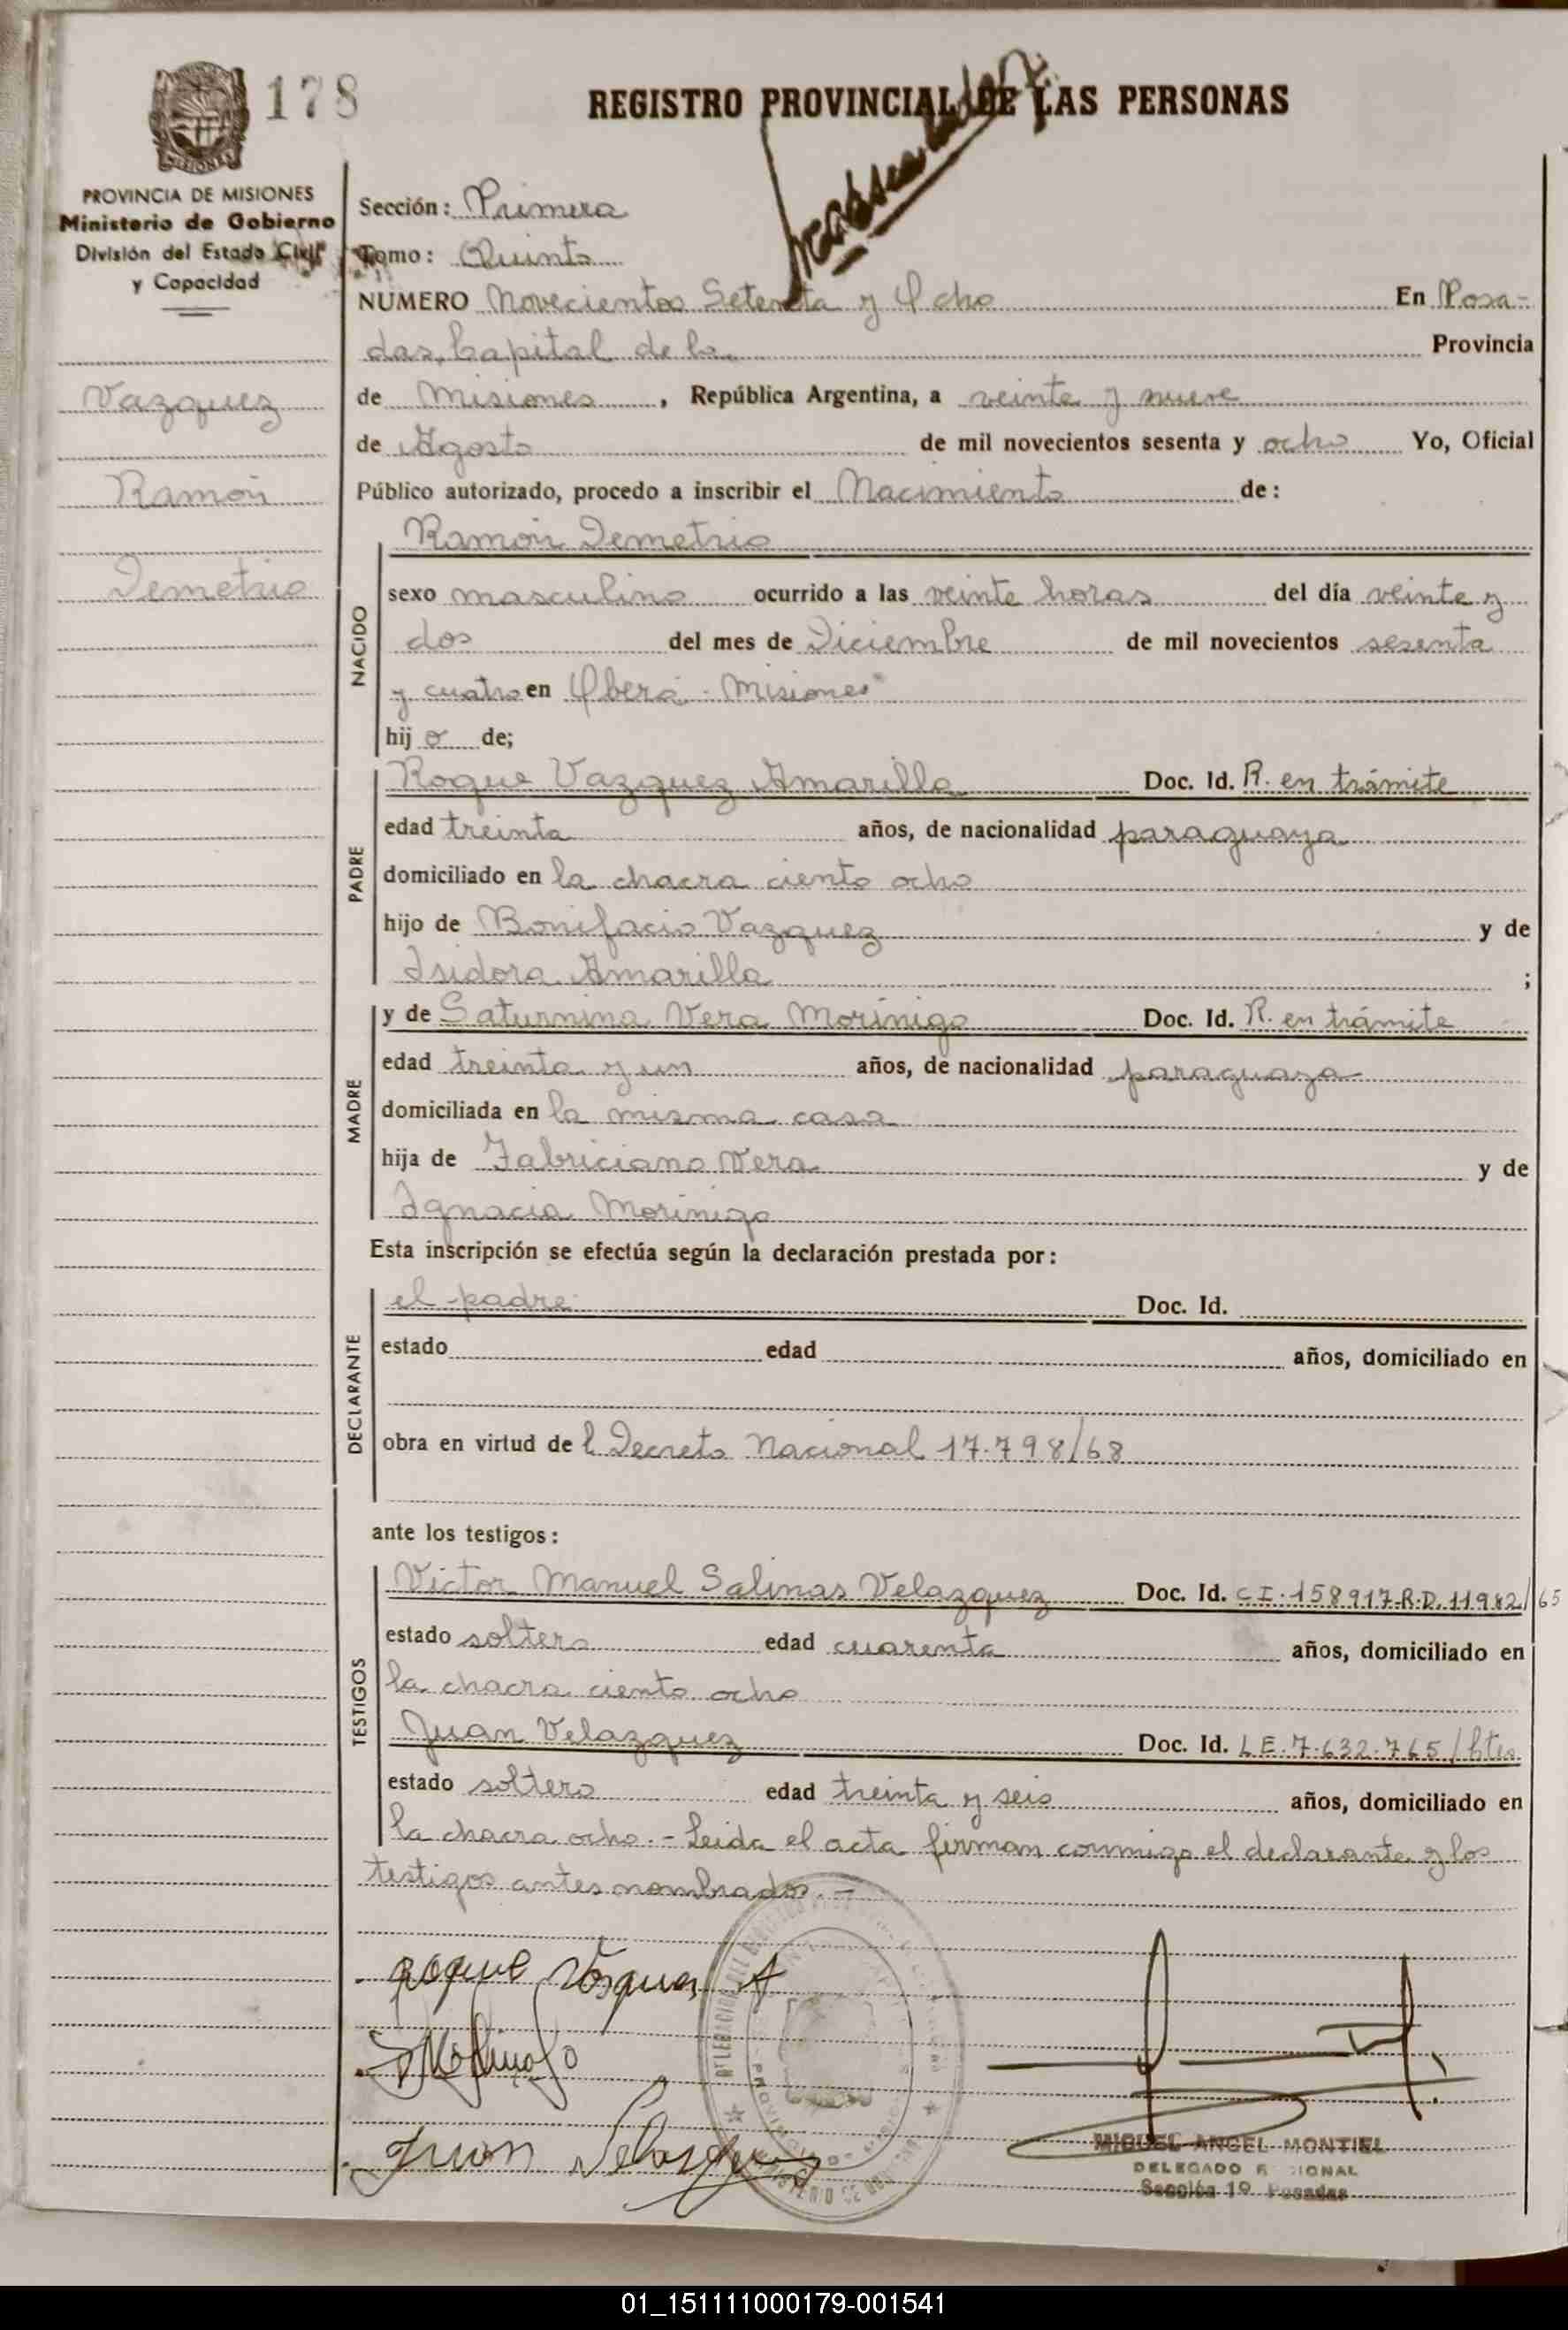 178
REGISTRO PROVINCIAL DE LAS PERSONAS
MISIONES
PROVINCIA DE MISIONES
Ministerio de Gobierno
División del Estado Civil
y Capacidad
Vazquez
Ramón
Demetrio
Sección: Primera
Tomo: Quinto
NUMERO Novecientos Setenta y Ocho En Posa-
das, Capital de la Provincia
de Misiones, República Argentina, a veinte y nueve
de Agosto de mil novecientos sesenta y ocho Yo, Oficial
Público autorizado, procedo a inscribir el Nacimiento de:
NACIDO
Ramón Demetrio
sexo masculino ocurrido a las veinte horas del día veinte y
dos del mes de Diciembre de mil novecientos sesenta
y cuatro en Oberá - Misiones
hij o de;
PADRE
Roque Vazquez Amarilla Doc. Id. R. en trámite
edad treinta años, de nacionalidad paraguaya
domiciliado en la chacra ciento ocho
hijo de Bonifacio Vazquez y de
Isidora Amarilla ;
MADRE
y de Saturnina Vera Morinigo Doc. Id. R. en trámite
edad treinta y un años, de nacionalidad paraguaya
domiciliada en la misma casa
hija de Fabriciano Vera y de
Ignacia Morinigo
Esta inscripción se efectúa según la declaración prestada por:
DECLARANTE
el padre Doc. Id.
estado edad años, domiciliado en
obra en virtud de l Decreto Nacional 17.798/68
ante los testigos:
TESTIGOS
Victor Manuel Salinas Velazquez Doc. Id. CI. 158917-R.D. 11982/65
estado soltero edad cuarenta años, domiciliado en
la chacra ciento ocho
Juan Velazquez Doc. Id. L E. 7.632.765/
estado soltero edad treinta y seis años, domiciliado en
la chacra ocho. - Leida el acta firman conmigo el declarante y los
testigos antes nombrados. -
Roque Vasques A
Juan Velasquez
MIGUEL ANGEL MONTIEL
DELEGADO REGIONAL
Sección 1º Posadas
01_151111000179-001541